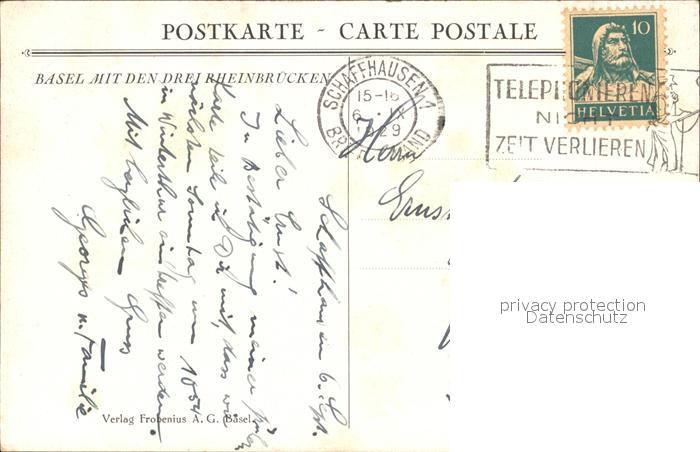 POSTKARTE - CARTE POSTALE
BASEL MIT DEN DREI RHEINBRÜCKEN
SCHAFFHAUSEN 1
15-16
6. IX
1929
BRIEFVERSAND
TELEPHONIEREN
NICHT
ZEIT VERLIEREN
10
HELVETIA
Herrn
Ernst
privacy protection
Datenschutz
Schaffhausen 6. Sept.
Lieber Ernst!
In Bestätigung meiner
Karte teile ich Dir mit, dass wir
nächsten Sonntag um 10 54
in Winterthur eintreffen werden.
Mit herzlichem Gruss
Georges u. Familie
Verlag Frobenius A. G. Basel